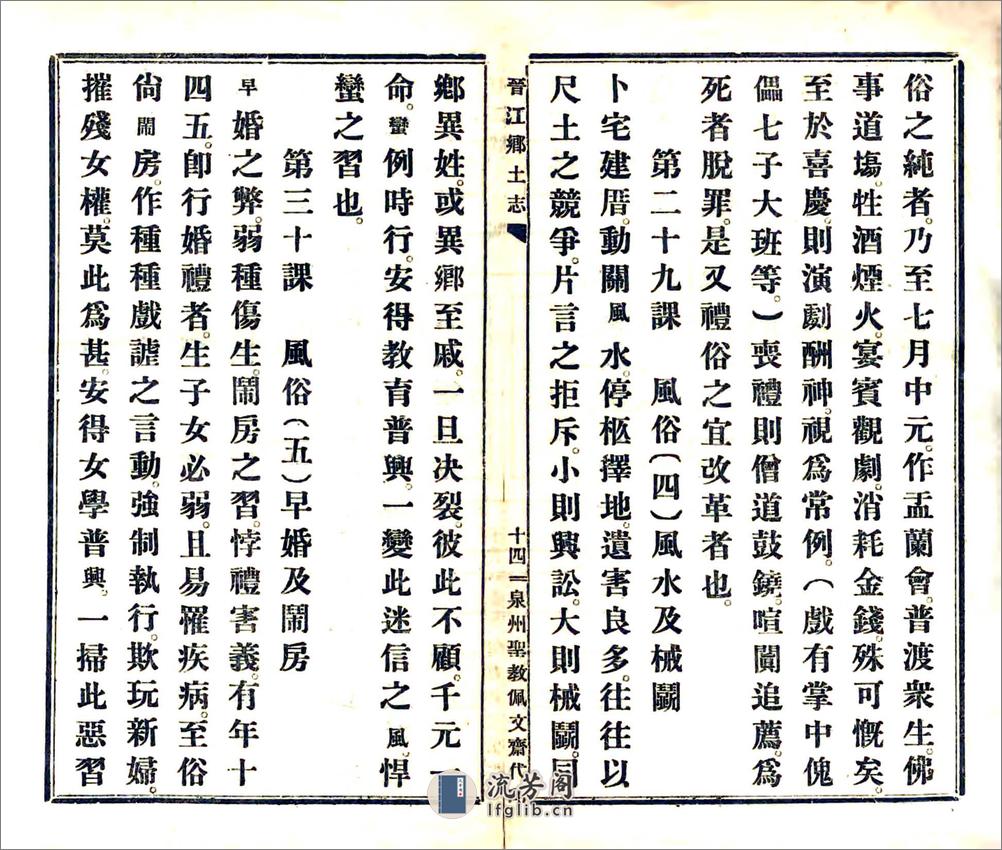 俗之純者。乃至七月中元。作盂蘭會。普渡衆生。佛
事道塲。牲酒煙火。宴賓觀劇。消耗金錢。殊可慨矣。
至於喜慶。則演劇酬神。視爲常例。（戲有掌中傀
儡七子大班等。）喪禮則僧道鼓鐃。喧闐追薦。爲
死者脫罪。是又禮俗之宜改革者也。
第二十九課　風俗（四）風水及械鬭
卜宅建厝。動關風水。停柩擇地。遺害良多。往往以
尺土之競爭。片言之拒斥。小則興訟。大則械鬭。同
晉江鄉土志
十四　泉州聖教佩文齋代
鄉異姓。或異鄉至戚。一旦決裂。彼此不顧。千元一
命。蠻例時行。安得教育普興。一變此迷信之風。悍
蠻之習也。
第三十課　風俗（五）早婚及鬧房
早婚之弊。弱種傷生。鬧房之習。悖禮害義。有年十
四五。卽行婚禮者。生子女必弱。且易罹疾病。至俗
尙鬧房。作種種戲謔之言動。強制執行。欺玩新婦。
摧殘女權。莫此爲甚。安得女學普興。一掃此惡習
流芳阁
lfglib.cn